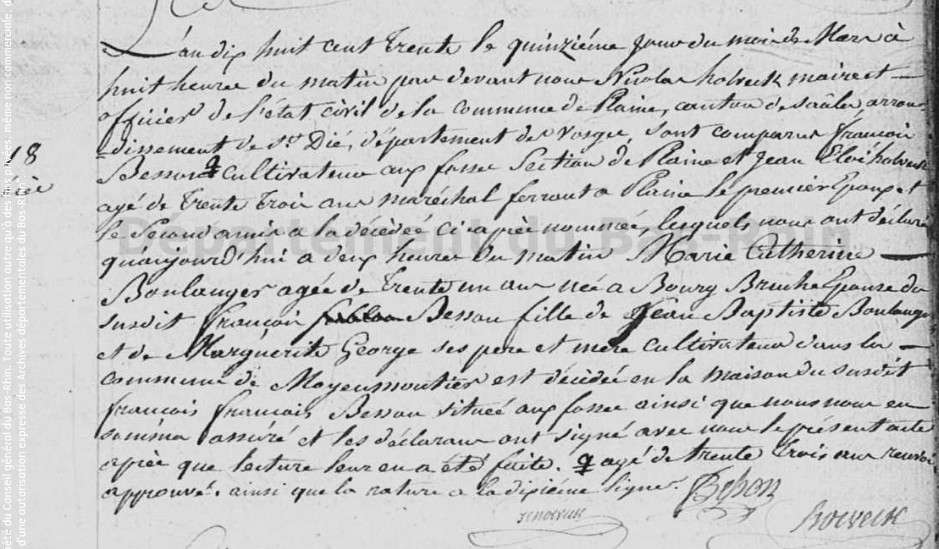 L'an dix huit cent trente le quinziéme jour du mois de Mars à
huit heures du matin par devant nous Nicolas holveck maire et
officier de l'état civil de la commune de Plaine, canton de saâles arron-
dissement de St. Dié, département des vosges, sont comparus françois
18
Besson cultivateur aux fosses Section de Plaine et Jean Eloi holveck
agé de trente trois ans maréchal ferrant a Plaine le premier Epoux et
le Second ami a la décédée ci après nommée, lesquels nous ont déclaré
quaujourd'hui a deux heures du matin Marie Catherine
Boulanger agée de trente un ans née a Bourg Bruche Epouse du
susdit françois Besson fille de Jean Baptiste Boulanger
et de Marguerite George ses pere et mere cultivateurs dans la
commune de Moyenmoutier est décédée en la maison du susdit
françois françois Besson située aux fosses ainsi que nous nous en
somme assuré et les déclarans ont signé avec nous le présent acte
après que lecture leur en a été faite. agé de trente trois ans renvoi
approuvé. ainsi que la rature a la dixiéme ligne. Besson
holveck
Département du Bas-Rhin